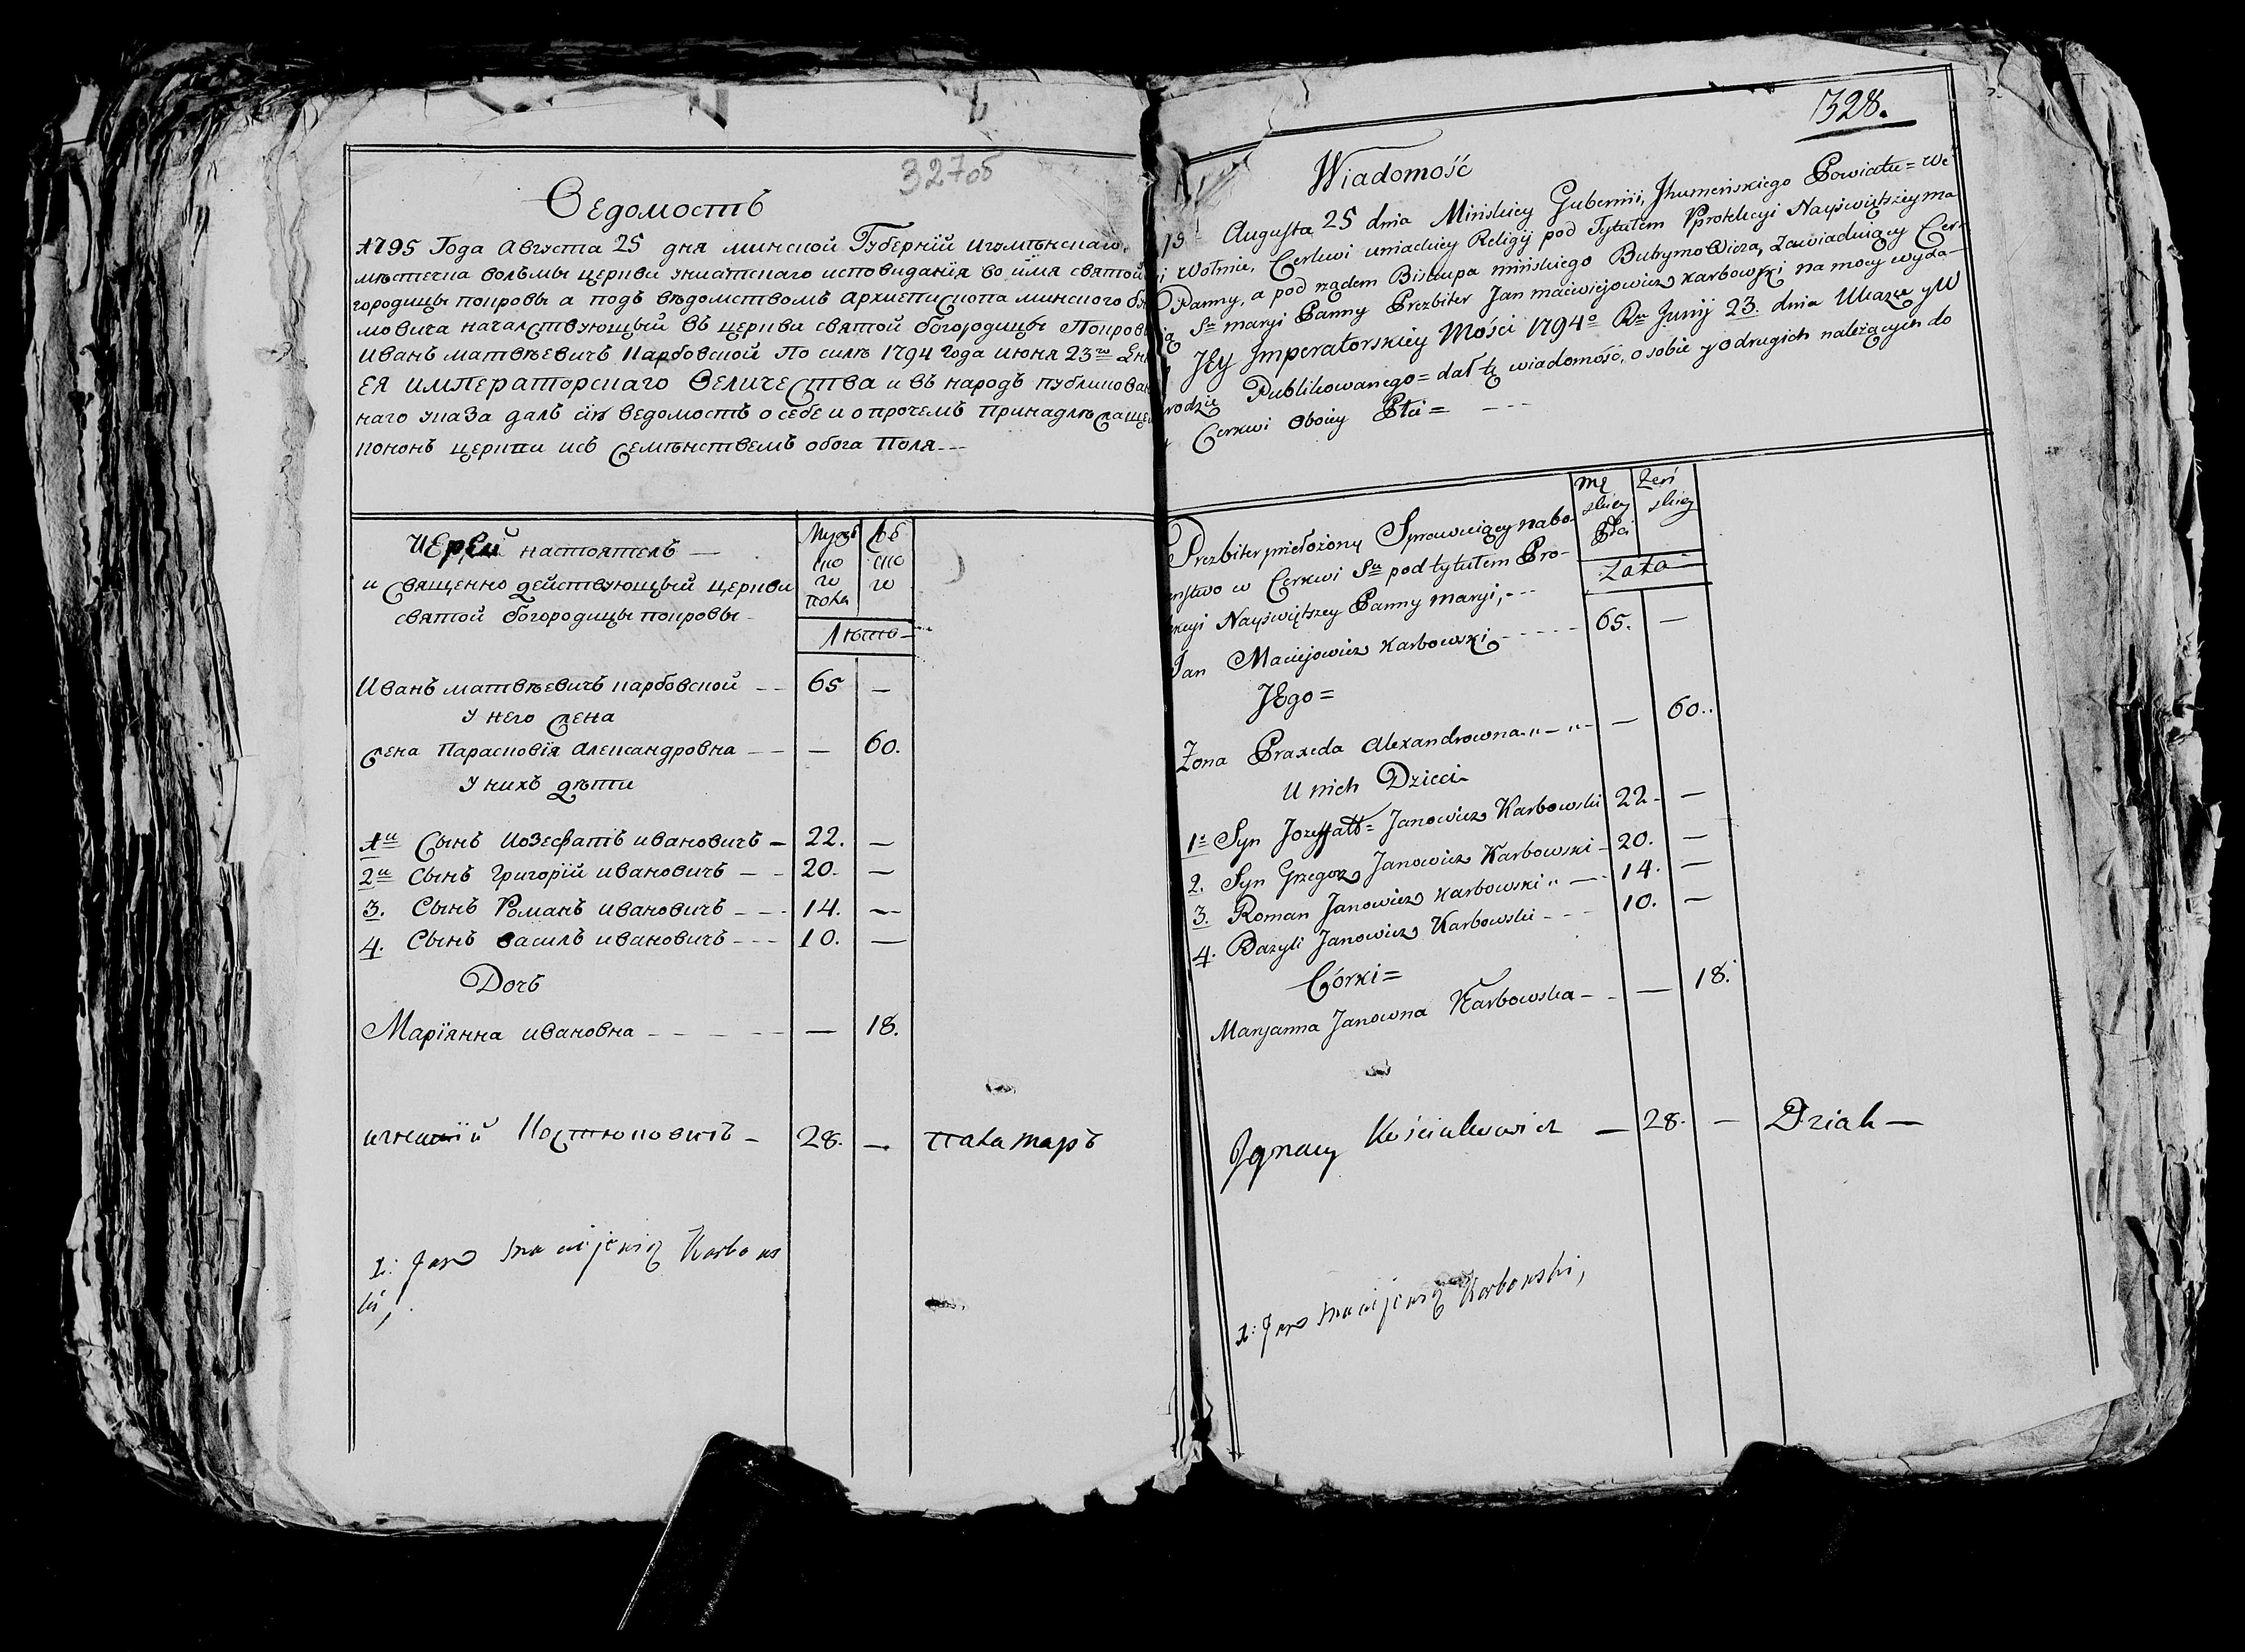 327об
Ведомость
1795 Года Августа 25 дня минской Губернїй игумѣнскаго
мѣстечка волмы церкви униатскаго исповиданїя во имя святой
городицы покровы а подъ вѣдомствомъ архиепископа минского бу
мовича началствующый въ церкви святой богородицы Покров
Иванъ матвѣевичъ Карбовской По силѣ 1794 Года июня 23го дня
ЕЯ ИМПЕРАТОРСКАГО ВЕЛИЧЕСТВА и въ народъ публикован
наго указа далъ сїю ведомость о себе и о прочемъ Принадлежаще
церкви исъ семѣнствемъ обога Пола
ИЕрей настоятель —
и священно действующый церкви
святой богородицы покровы
Мужс
ко
го
пола
Жѣ
ско
го
Лѣта
Иванъ матвѣевичъ карбовской — 65 —
У него жена
жена Парасковїя Александровна — — 60.
У нихъ дѣти
1й Сынъ Иозефатъ ивановичъ — 22. —
2й Сынъ Григорїй ивановичъ — 20. —
3. Сынъ Романъ ивановичъ — 14. —
4. Сынъ василъ ивановичъ — 10. —
Дочъ
Марїянна ивановна — — 18.
игнатїй Костюковичъ — 28. — паламаръ
x: Jan Maciejewicz Karbows
ki,
328.
Wiadomość
Augusta 25 dnia Mińskiey Gubernii, Jhumeńskiego Powiatu = we
Wołmie, Cerkwi uniackiey Religij pod Tytułem Protekcyi Nayświętszey ma
Panny, a pod rządem Biskupa mińskiego Butrymowicza, Zawiadujący Cer
Sey maryi Panny Prezbiter Jan maciejowicz Karbowski na mocy wyda-
JEy Imperatorskiey Mości 1794o Ru Junij 23. dnia Ukazu y W
rodzie Publikowanego = dał tę wiadomość, o sobie y o drugich należących do
Cerkwi oboiey Płci =
Prezbiter przełożony Sprawuiący nabo-
eństwo w Cerkwi Sey pod tytułem Pro-
kcyi Nayświętszey Panny maryi, -
mę
skiey
Płci
Żeń
skiey
Lata
Jan Maciejowicz Karbowski - 65. —
JEgo =
Żona Praxeda Alexandrowna — 60.
U nich Dzieci
1. Syn Jozeffatt = Janowicz Karbowski 22 —
2. Syn Grzegorz Janowicz Karbowski - 20. —
3. Roman Janowicz Karbowski — 14. —
4. Bazyli Janowicz Karbowski - 10. —
Córki =
Maryanna Janowna Karbowska - — 18.
Jgnacy Kościukowicz — 28. — Dziak —
x: Jan Maciejewicz Karbowski,